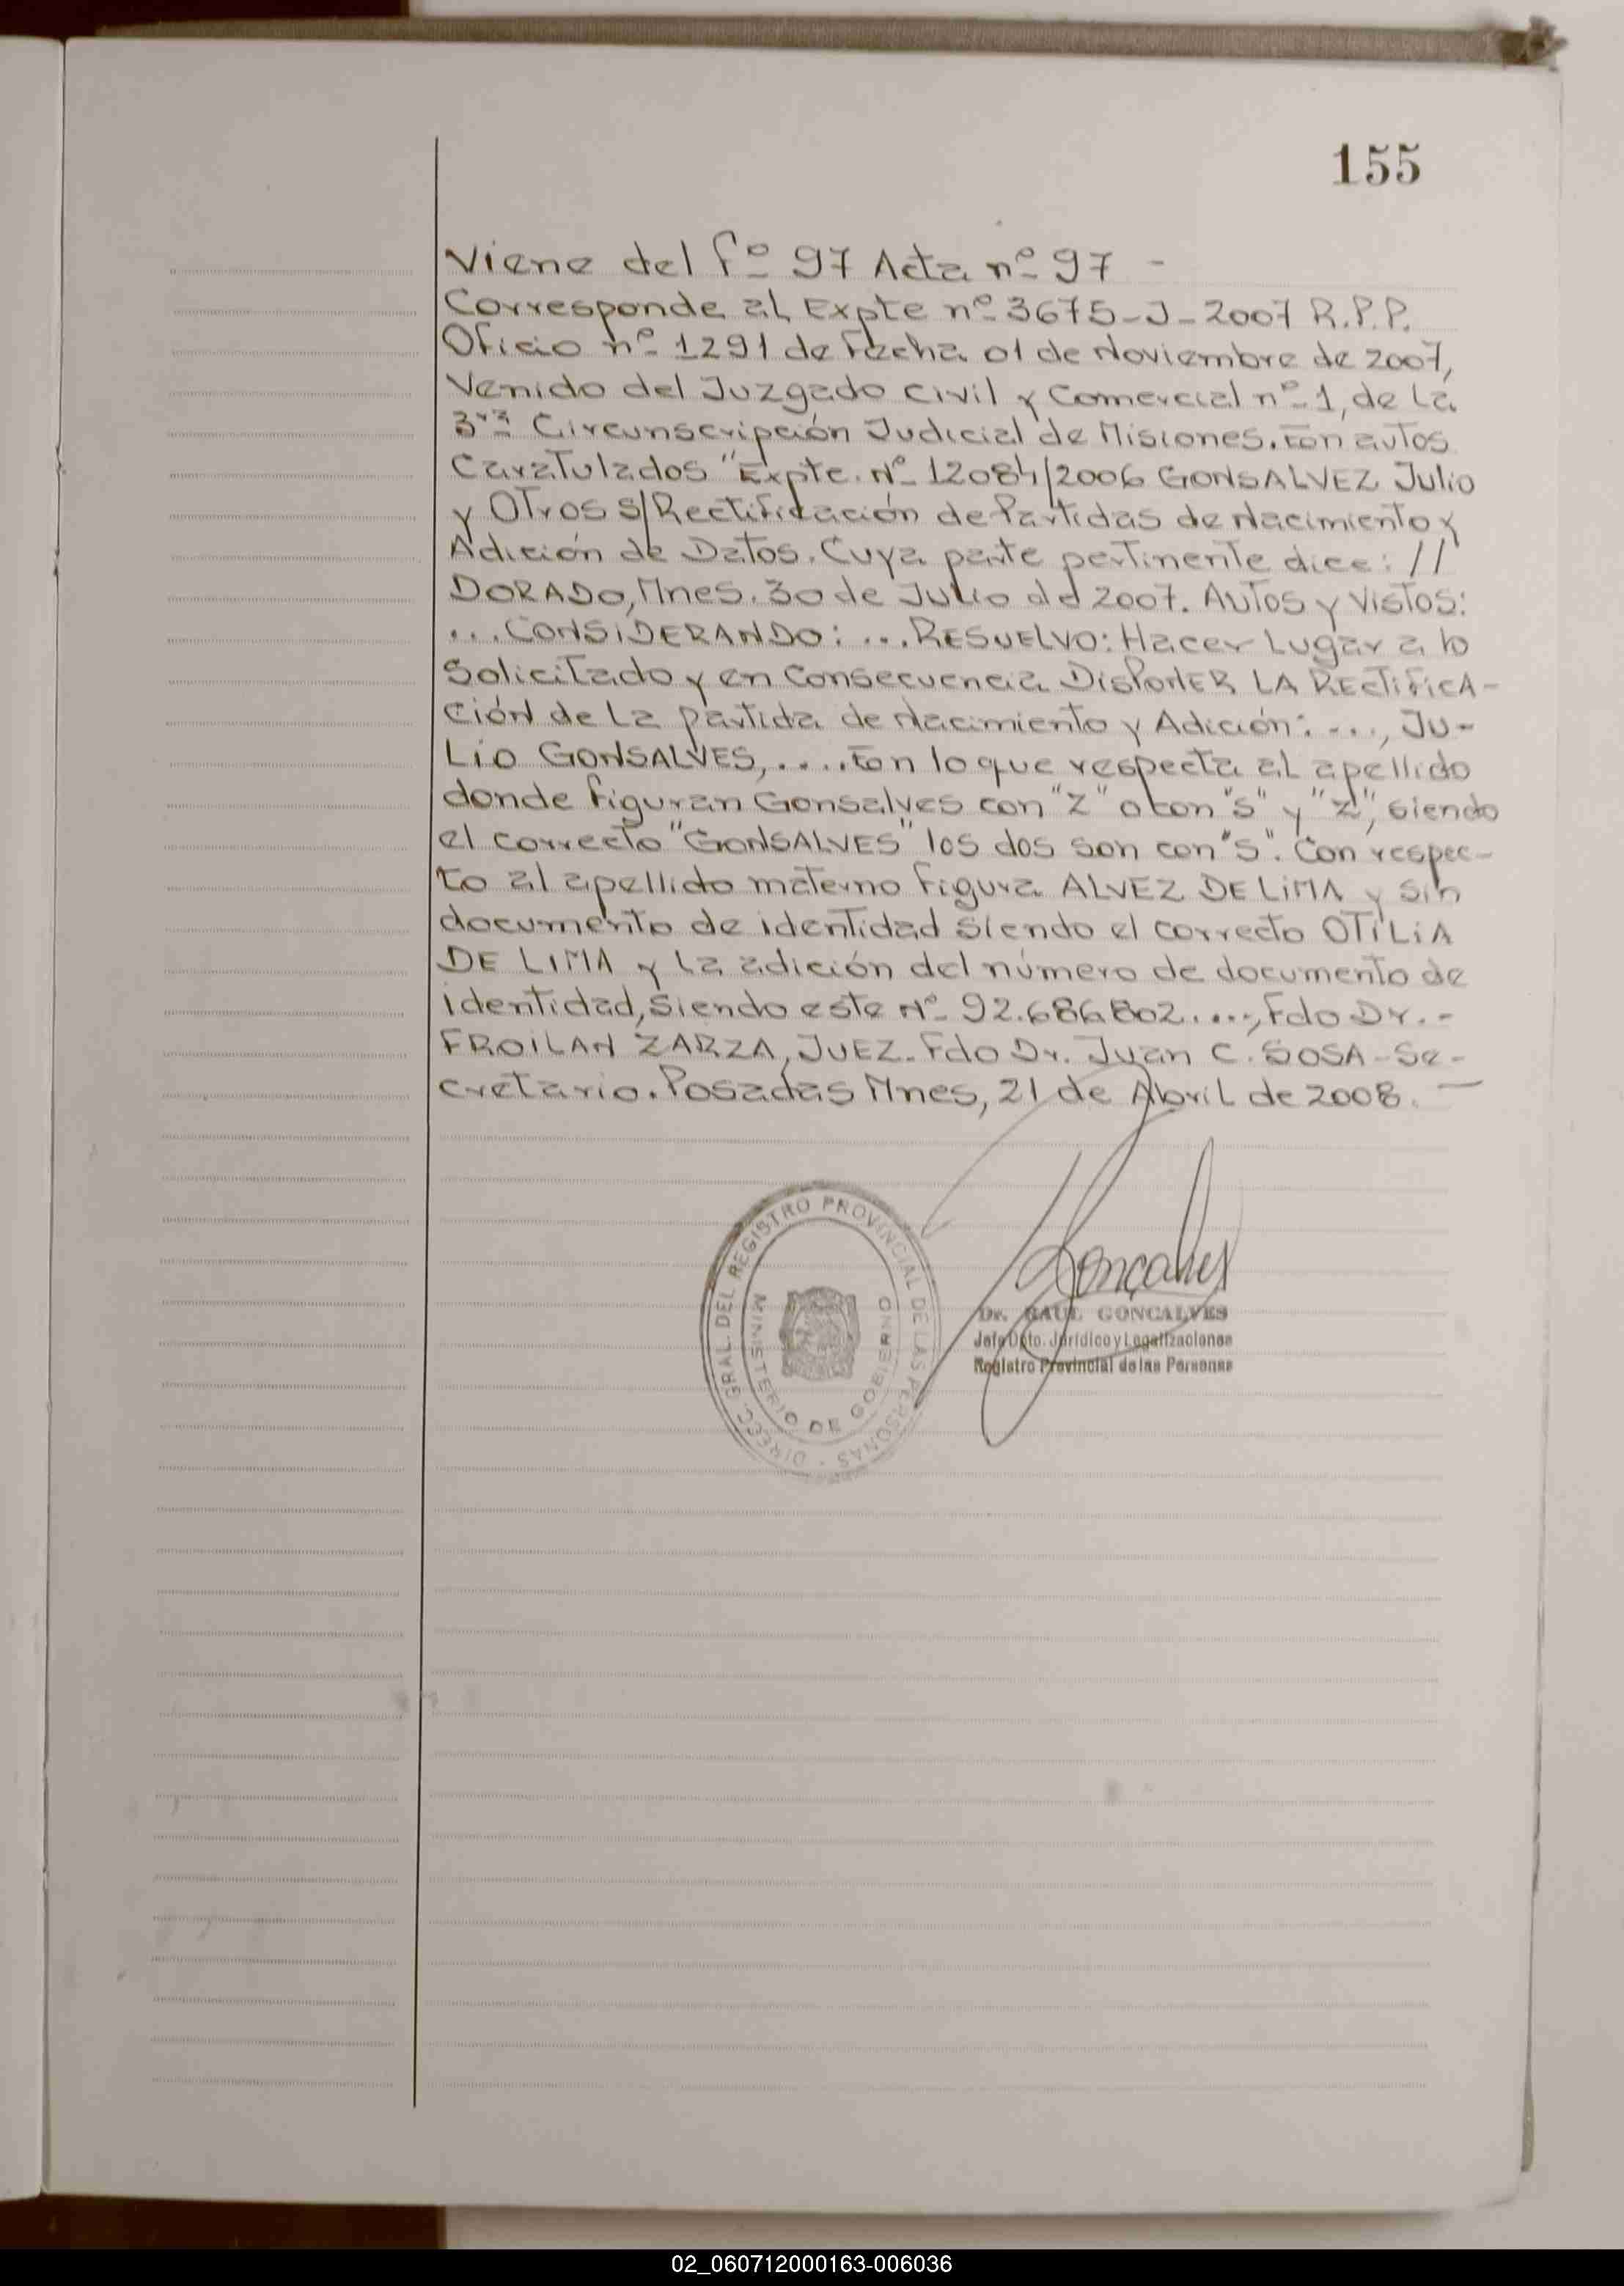 155
Viene del fº 97 Acta nº 97 -
Corresponde al Expte nº 3675-J-2007 R.P.P.
Oficio nº 1291 de Fecha 01 de Noviembre de 2007,
Venido del Juzgado Civil y Comercial nº 1, de la
3ra Circunscripción Judicial de Misiones. En autos
Caratulados "Expte. Nº 12084/2006 GONSALVEZ Julio
y OTros S/Rectificación de Partidas de Nacimiento y
Adición de Datos. Cuya parte pertinente dice: //
DORADO, Mnes. 30 de Julio de 2007. AUTOS y VISTOS:
...CONSIDERANDO: ...RESUELVO: Hacer Lugar a lo
Solicitado y en Consecuencia DISPONER LA RECTIFICA-
CIÓN de La partida de Nacimiento y Adición: ..., JU-
LIO GONSALVES, ....En lo que respecta al apellido
donde figuran Gonsalves con "Z" o con "S" y "Z", siendo
el correcto "GONSALVES" los dos son con "S". Con respec-
to al apellido materno Figura ALVEZ DE LIMA y Sin
documento de identidad Siendo el correcto OTILIA
DE LIMA y La adición del número de documento de
identidad, Siendo este Nº 92.686.802. ..., Fdo Dr. -
FROILAN ZARZA, JUEZ. Fdo Dr. Juan C. SOSA - Se-
cretario. Posadas Mnes, 21 de Abril de 2008. —
DIRECC. GRAL. DEL REGISTRO PROVINCIAL DE LAS PERSONAS
MINISTERIO DE GOBIERNO
Gonçalves
Dr. RAUL GONCALVES
Jefe Dpto. Jurídico y Legalizaciones
Registro Provincial de las Personas
02_060712000163-006036